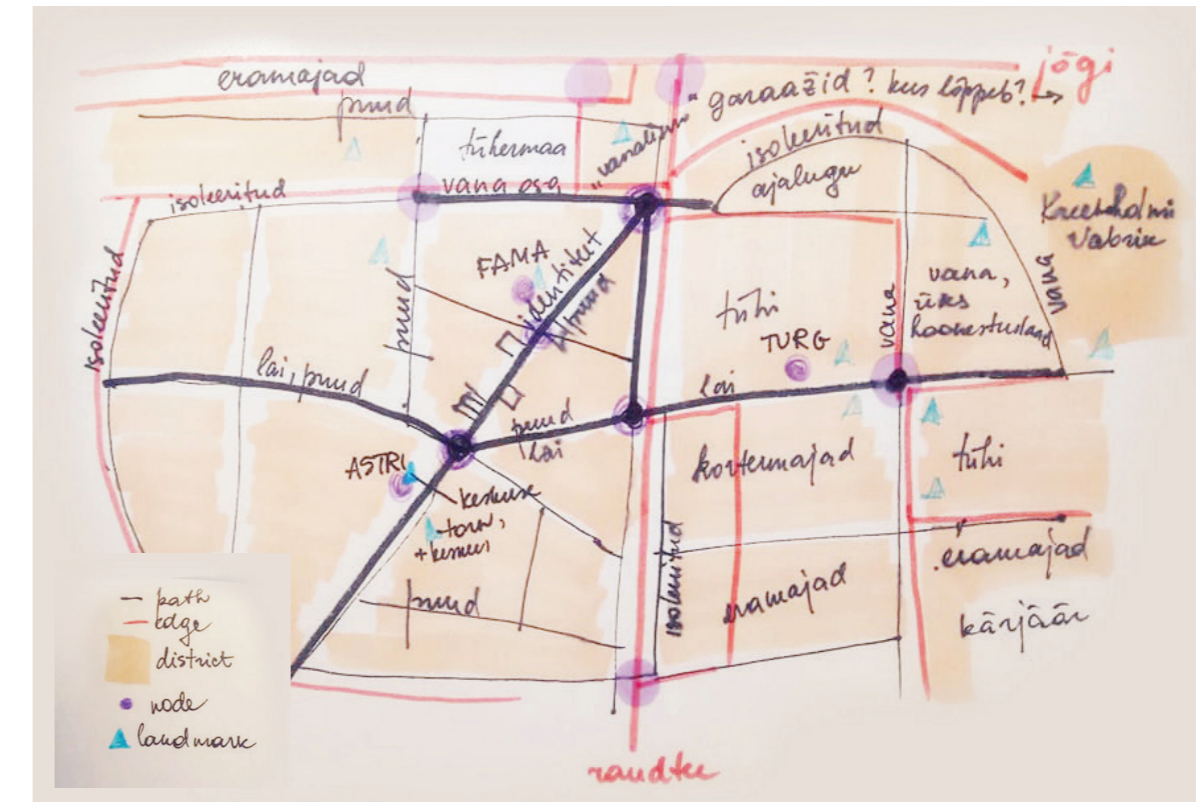 eramajad
puud
jõgi
"garaažid? kus lõppeb? →
tühermaa
"vanalinn"
isoleeritud
ajalugu
isoleeritud
vana osa
Kreenholmi
Vabrik
isoleeritud
FAMA
identiteet
puud
puud
tühi
TURG
vana
vana,
üks
hoonestuslaad
vana
lai, puud
puud
lai
lai
ASTRI
keskuse
torn,
+keskus
kortermajad
tühi
isoleeritud
puud
eramajad
eramajad
kärjäär
raudtee
path
edge
district
node
landmark